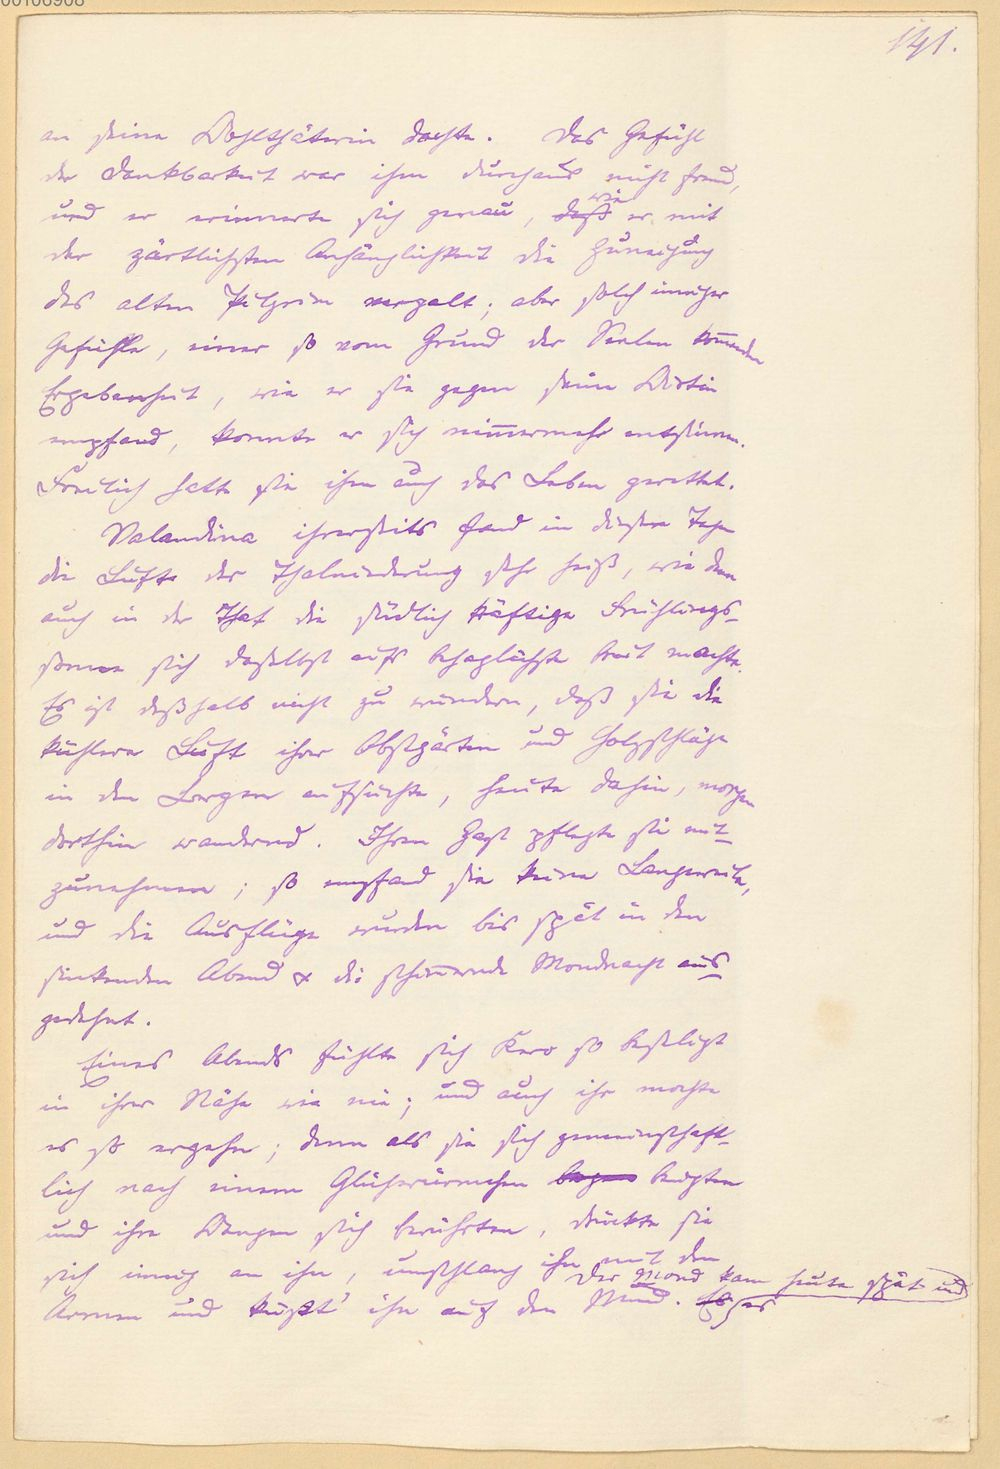 00106908
141.
an seine Wohlthäterin dachte. Das Gefühl
der Dankbarkeit war ihm durchaus nicht fremd,
und er erinnerte sich genau, daß wie er mit
der zärtlichsten Anhänglichkeit die Zuneigung
des alten Pilgrim vergalt; aber solch inniger
Gefühle, einer so vom Grund der Seelen kom̅enden
Ergebenheit, wie er sie gegen seine Wirtin
empfand, konnte er sich nim̅ermehr entsinnen.
Freilich hatte sie ihm auch das Leben gerettet.
Valandina ihrerseits fand in diesen Tagen
die Lüfte der Thalniederung sehr heiß, wie denn
auch in der That die südlich kräftige Frühlings-
sonne sich daselbst aufs behaglichste breit machte.
Es ist deßhalb nicht zu wundern, daß sie die
kühlere Luft ihrer Obstgärten und Holzschläge
in den Bergen aufsuchte, heute dahin, morgen
dorthin wandernd. Ihren Gast pflegte sie mit-
zunehmen; so empfand sie keine Langeweile,
und die Ausflüge wurden bis spät in den
sinkenden Abend & die schim̅ernde Mondnacht aus-
gedehnt.
Eines Abends fühlte sich Kero so beseligt
in ihrer Nähe wie nie; und auch ihr mochte
es so ergehn; denn als sie sich gemeinschaft-
lich nach einem Glühwürmchen beugten
und ihre Wangen sich berührten, drückte sie
sich innig an ihn, umschlang ihn mit den
Armen und küßt' ihn auf den Mund. Der Mond kam heute spät und